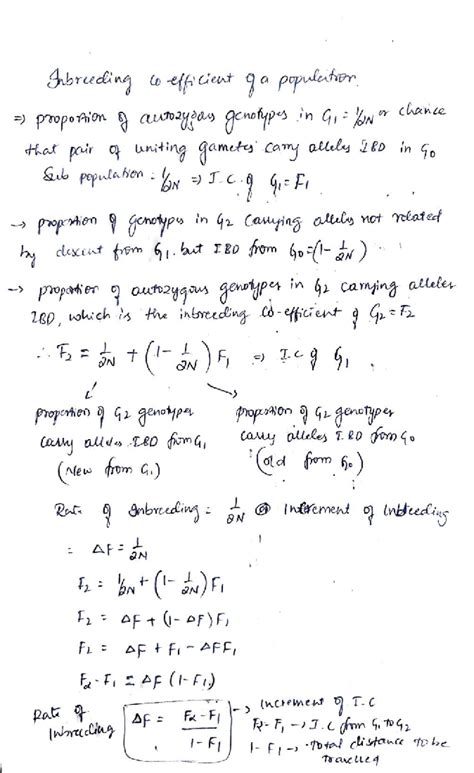 Inbreeding co-efficient of a population.
⇒ proportion of autozygous genotypes in G₁ = 1/2N or chance
that pair of uniting gametes carry alleles IBD in G₀
Sub population = 1/2N ⇒ I.C. of G₁ = F₁
→ proportion of genotypes in G₂ carrying alleles not related
by descent from G₁ but IBD from G₀ = (1 - 1/2N)
→ proportion of autozygous genotypes in G₂ carrying alleles
IBD, which is the inbreeding co-efficient of G₂ = F₂
∴ F₂ = 1/2N + (1 - 1/2N) F₁ ⇒ I.C of G₁
proportion of G₂ genotypes
carry alleles IBD from G₁
(New from G₁)
proportion of G₂ genotypes
carry alleles IBD from G₀
(old from G₀)
Rate of Inbreeding = 1/2N Increment of Inbreeding
= ΔF = 1/2N
F₂ = 1/2N + (1 - 1/2N) F₁
F₂ = ΔF + (1 - ΔF) F₁
F₂ = ΔF + F₁ - ΔFF₁
F₂ - F₁ = ΔF (1 - F₁)
Rate of
Inbreeding
ΔF = F₂ - F₁ / 1 - F₁
→ Increment of I.C
F₂ - F₁ → I.C from G₁ to G₂
1 - F₁ → Total distance to be
travelled